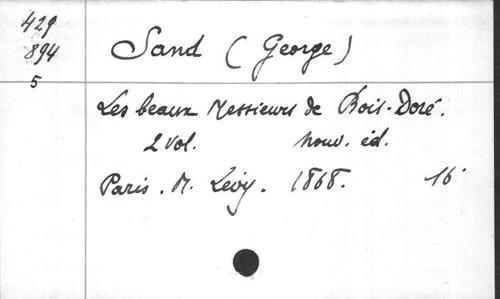 429
894
5
Sand (George)
Les beaux Messieurs de Bois-Doré.
2 vol. nouv. éd.
Paris. M. Lévy. 1868. 16°